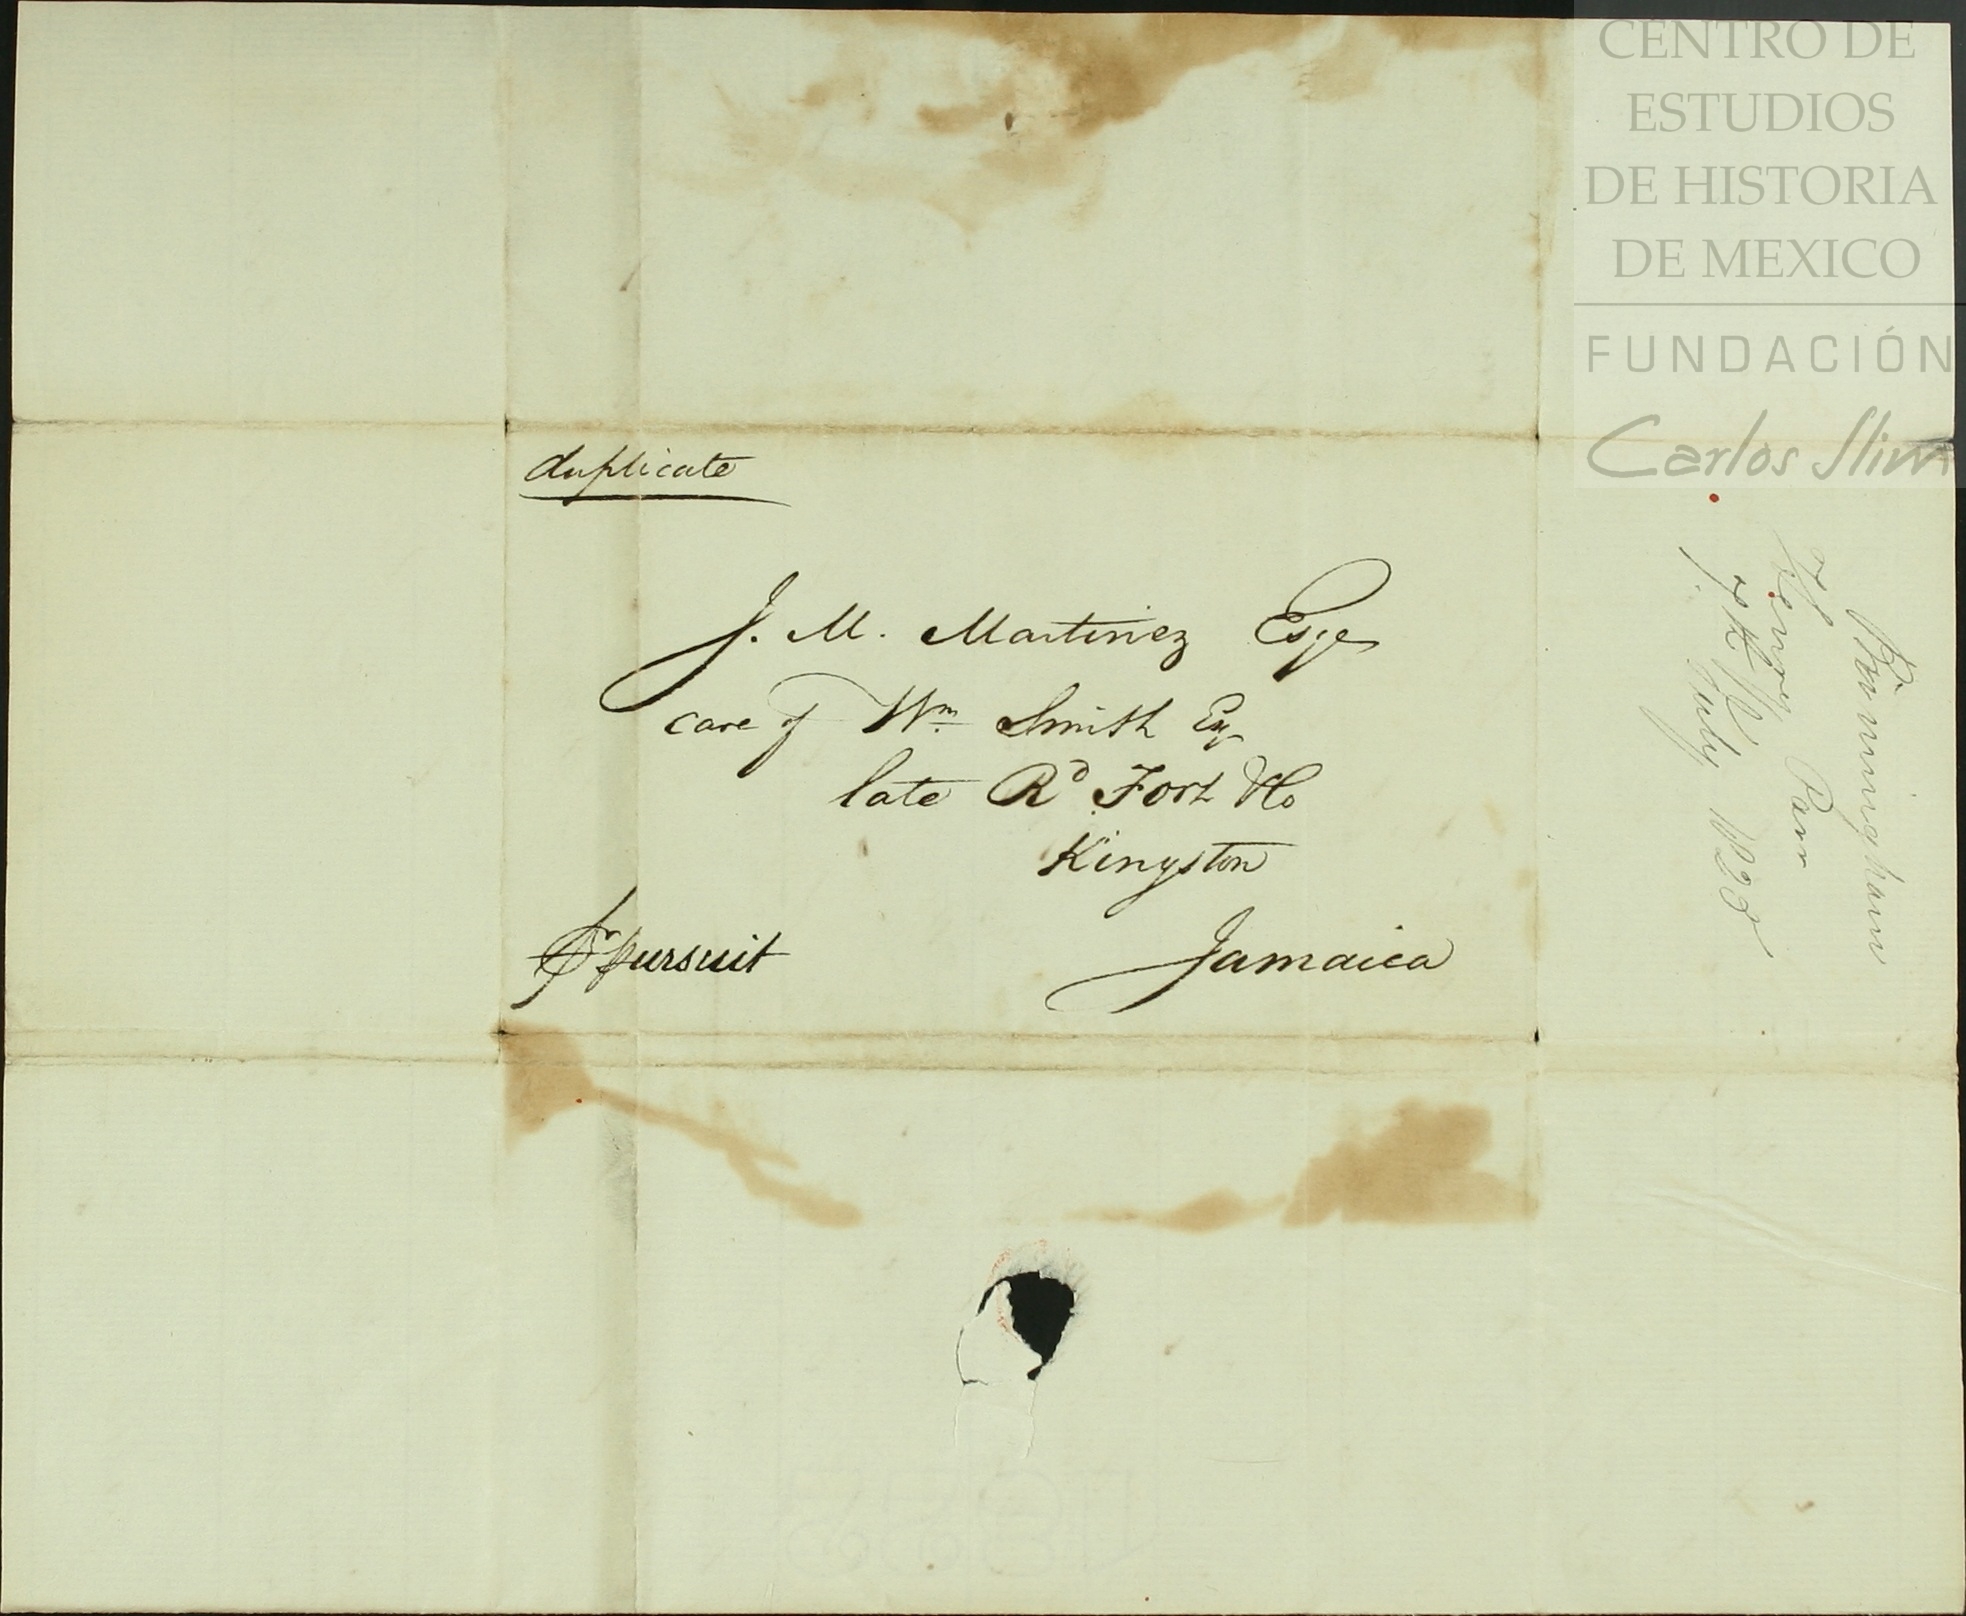 duplicate
J. M. Martinez Esqe
care of Wm. Smith Esq
late Rd Fort Ho
Kingston
Jamaica
Pr Pursuit
Birmingham
Henry Parr
July 1823
CENTRO DE
ESTUDIOS
DE HISTORIA
DE MEXICO
FUNDACIÓN
Carlos Slim